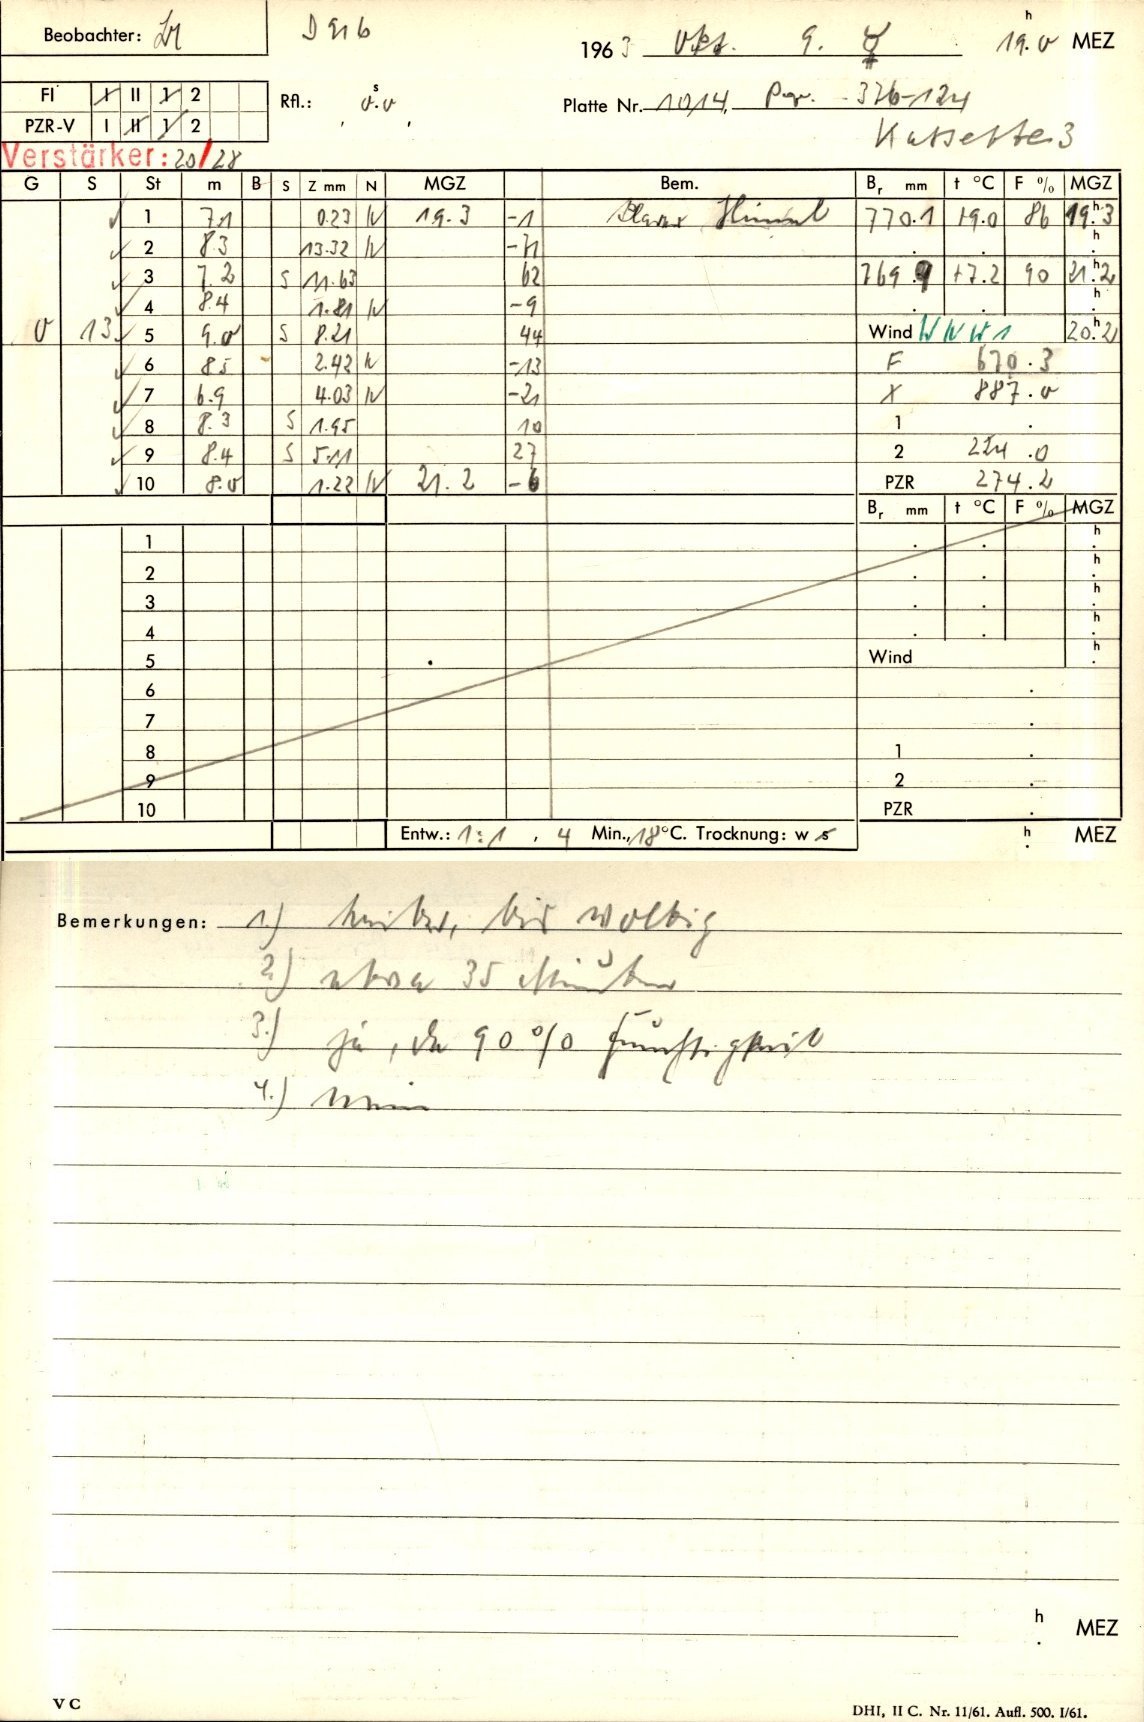 Beobachter:
1963 Okt. 9. ☿ 19.0 h MEZ
FI I II 1 2
PZR-V I II 1 2
Rfl.: 0.0 s
Platte Nr. 1014, 376-124
Kassette 3
Verstärker: 20/28
G S St m B S Z mm N MGZ Bem. Br mm t °C F % MGZ
1 7.1 0.23 N 19.3 -1 Himmel 770.1 +9.0 86 19.3 h
2 8.3 13.32 N -71 h
3 7.2 S 11.63 62 769.9 +7.2 90 21.2 h
4 8.4 1.81 N -9 h
0 13 5 9.0 S 8.21 44 Wind WNW 1 20.2 h
6 8.5 2.42 N -13 F 670.3
7 6.9 4.03 N -21 X 887.0
8 8.3 S 1.95 10 1 .
9 8.4 S 5.11 27 2 224.0
10 8.0 1.22 N 21.2 -6 PZR 274.2
Br mm t °C F % MGZ
1 h
2 h
3 h
4 h
5 Wind h
6
7
8 1
9 2
10 PZR
Entw.: 1:1, 4 Min., 18 °C. Trocknung: w s h MEZ
Bemerkungen: 1.) heiter, bis wolkig
2.) etwa 35 Minuten
3.) ja, da 90 % Feuchtigkeit
4.) nein
h MEZ
V C
DHI, II C. Nr. 11/61. Aufl. 500. I/61.